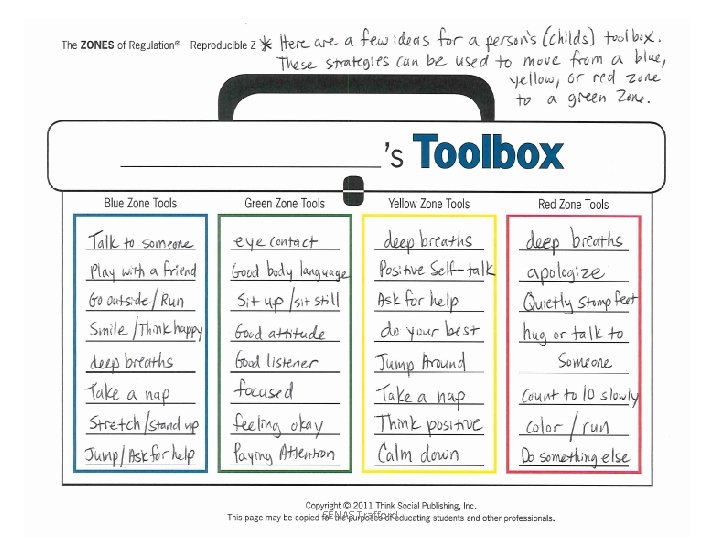 The ZONES of Regulation® Reproducible Z
* Here are a few ideas for a person's (childs) toolbox.
These strategies can be used to move from a blue,
yellow, or red zone
to a green zone.
's Toolbox
Blue Zone Tools
Talk to someone
Play with a friend
Go outside/Run
Smile/Think happy
deep breaths
Take a nap
Stretch/stand up
Jump/Ask for help
Green Zone Tools
eye contact
Good body language
Sit up/sit still
Good attitude
Good listener
focused
feeling okay
Paying Attention
Yellow Zone Tools
deep breaths
Positive Self-talk
Ask for help
do your best
Jump Around
Take a nap
Think positive
Calm down
Red Zone Tools
deep breaths
apologize
Quietly stomp feet
hug or talk to
someone
Count to 10 slowly
color/run
Do something else
Copyright © 2011 Think Social Publishing, Inc.
This page may be copied for the purposes of educating students and other professionals.
SENAS Trafford